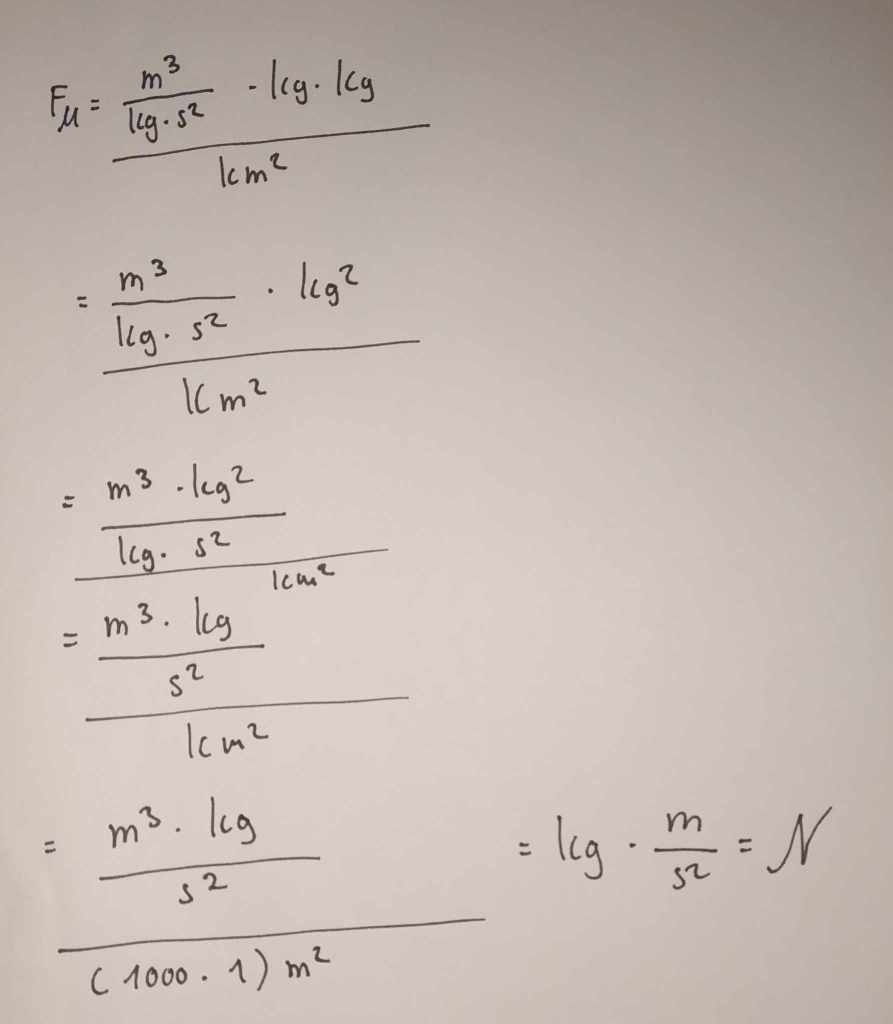 F_M = (m³ / kg · s²) · kg · kg / km²
= (m³ / kg · s²) · kg² / km²
= (m³ · kg² / kg · s²) / km²
= (m³ · kg / s²) / km²
= (m³ · kg / s²) / (1000 · 1) m² = kg · m / s² = N